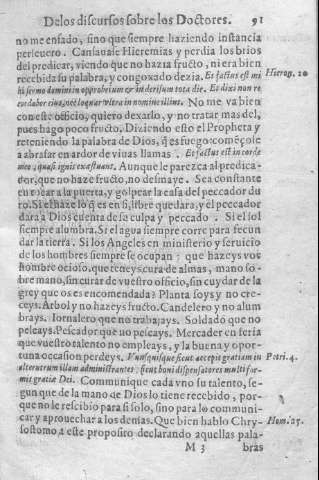 De los discursos sobre los Doctores. 91
no me enfado, sino que siempre haziendo instancia
perseuero. Cansauase Hieremias y perdia los brios
del predicar, viendo que no hazia fructo, ni era bien
recebida su palabra, y congoxado dezia. Et factus est mi
hi sermo domini in opprobrium & in derisum tota die. Et dixi non re
cordabor eius, neq; loquar vltra in nomine illius. No me va bien
con este officio, quiero dexarlo, y no tratar mas del,
pues hago poco fructo. Diziendo esto el Propheta y
reteniendo la palabra de Dios, q̃ es fuego: comẽçole
a abrasar en ardor de viuas llamas. Et factus est in corde
meo, quasi ignis exæstuans. Aunque le parezca al predica-
dor, que no haze fructo, no desmaye. Sea constante
en vozear a la puerta, y golpear la casa del peccador du
ro. Si el haze lo q̃ es en si, libre quedara, y el peccador
dara a Dios cuenta de su culpa y peccado. Si el sol
siempre alumbra. Si el agua siempre corre para fecun
dar la tierra. Si los Angeles en ministerio y seruicio
de los hombres siempre se ocupan: que hazeys vos
hombre ocioso. que teneys cura de almas, mano so-
bre mano, sin curar de vuestro officio, sin cuydar de la
grey que os es encomendada? Planta soys y no cre-
ceys. Arbol y no hazeys fructo. Candelero y no alum
brays. Iornalero que no trabajays. Soldado que no
peleays. Pescador que no pescays. Mercader en feria
que vuestro talento no empleays, y la buena y opor-
tuna occasion perdeys. Vnusquisque sicut accepit gratiam in
alterutrum illam administrantes, sicut boni dispensatores multifor-
mis gratiæ Dei. Communique cada vno su talento, se-
gun que de la mano de Dios lo tiene recebido, por-
que no le rescibio para si solo, sino para lo communi-
car y aprouechar a los demas. Que bien hablo Chry-
sostomo a este proposito declarando aquellas pala-
M 3 bras
Hierem. 20
Petri. 4.
Hom. 25.